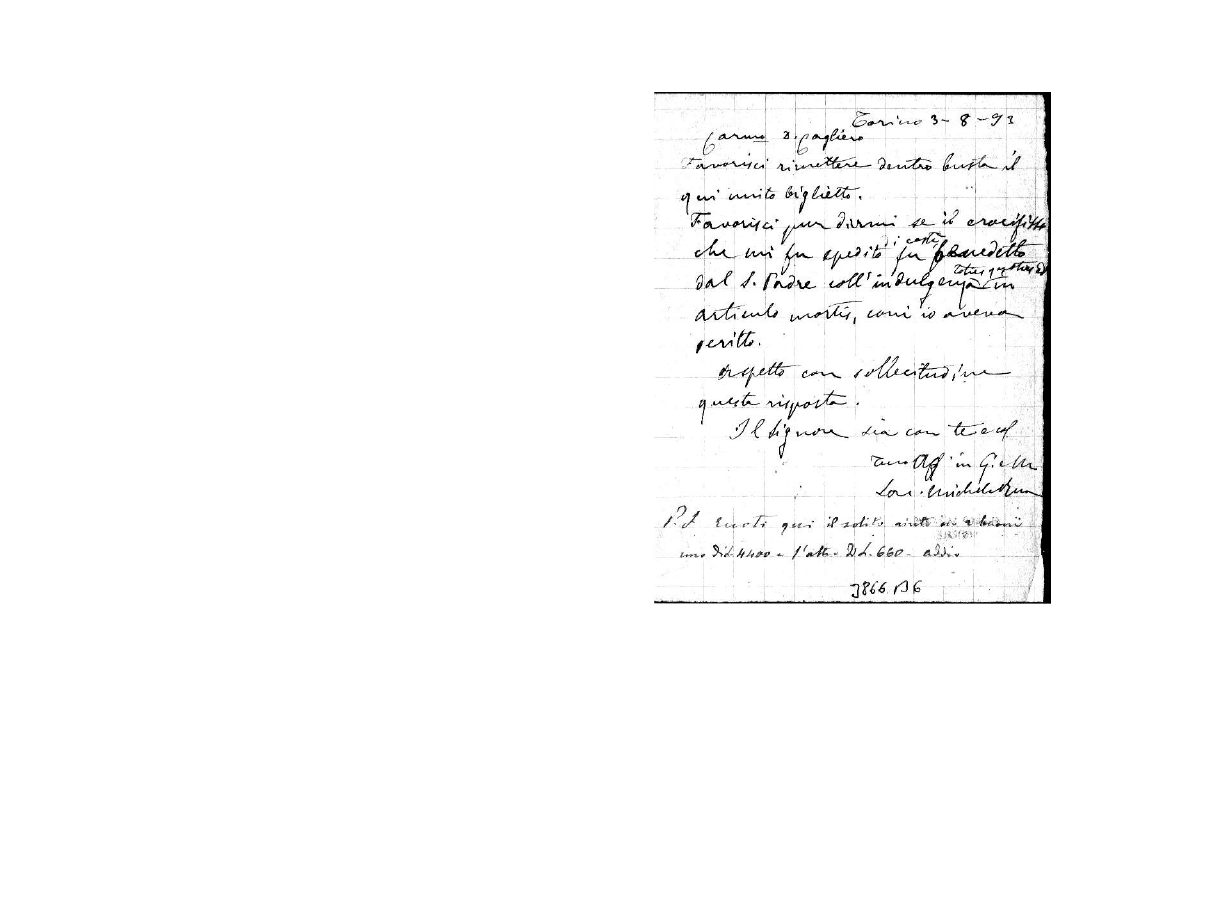 Torino 3-8-93
Carmo D. Cagliero
Favorisci rimettere dentro busta il
qui unito biglietto.
Favorisci pur dirmi se il crocifisso
che mi fu spedito di costì fu benedetto
dal S. Padre coll'indulgenza toties quoties ed in
articulo mortis, come io aveva
scritto.
Aspetto con sollecitudine
questa risposta.
Il Signore sia con te e col
tuo aff in G. e M
Sac. Michele Rua
P.S. Eccoti qui il solito
uno di L. 4400 e l'altro di L. 660 - addio
3866 B6